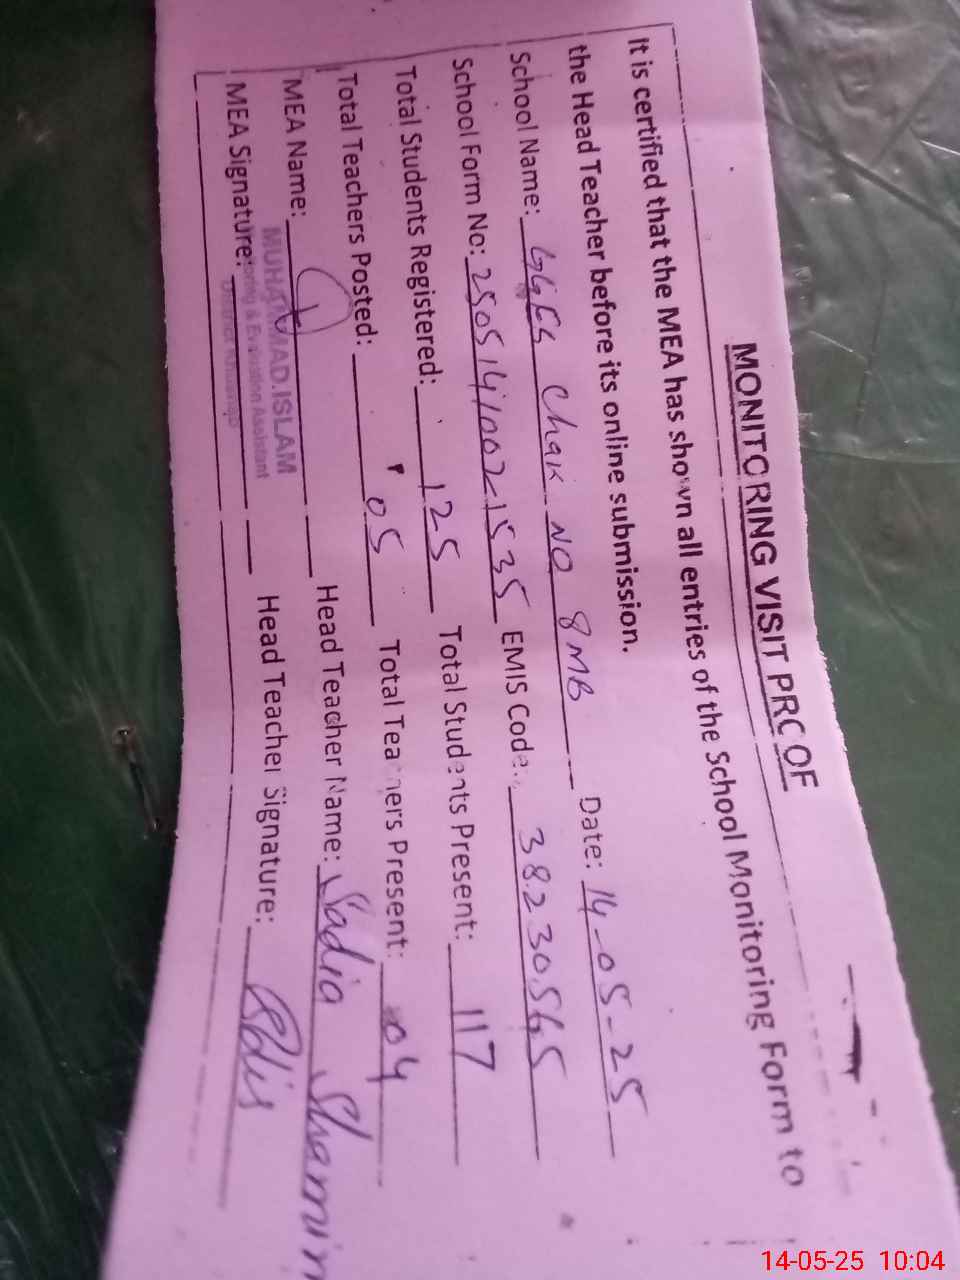 MONITORING VISIT PROOF
It is certified that the MEA has shown all entries of the School Monitoring Form to
the Head Teacher before its online submission.
School Name: GGES Chak NO 8MB Date: 14-05-25
School Form No: 25051410021535 EMIS Code: 38230565
Total Students Registered: 125 Total Students Present: 117
Total Teachers Posted: 05 Total Teachers Present: 04
MEA Name: Head Teacher Name: Sadia Shamim
MUHAMMAD.ISLAM
Monitoring & Evaluation Assistant
District Khushab
MEA Signature: Head Teacher Signature:
14-05-25 10:04